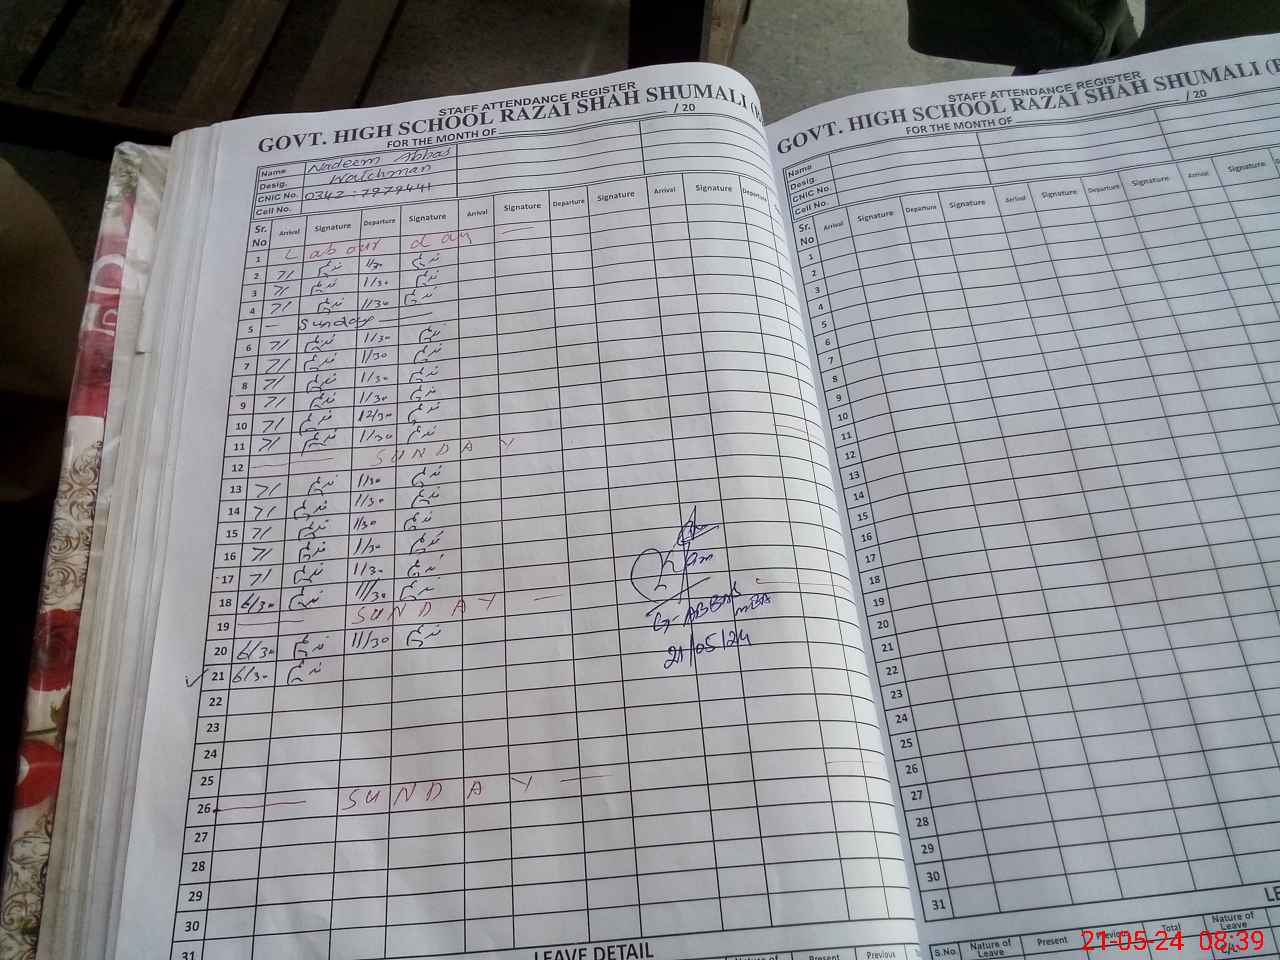 STAFF ATTENDANCE REGISTER
GOVT. HIGH SCHOOL RAZAI SHAH SHUMALI
FOR THE MONTH OF / 20
Name Nadeem Abbas
Desig. Watchman
CNIC No. 0342-7979441
Cell No.
Sr. No Arrival Signature Departure Signature Arrival Signature Departure Signature Arrival Signature Departure
1 Labour day
2 7/ ندیم 1/30 ندیم
3 7/ ندیم 1/30 ندیم
4 7/ ندیم 1/30 ندیم
5 Sunday
6 7/ ندیم 1/30 ندیم
7 7/ ندیم 1/30 ندیم
8 7/ ندیم 1/30 ندیم
9 7/ ندیم 1/30 ندیم
10 7/ ندیم 12/30 ندیم
11 7/ ندیم 1/30 ندیم
12 SUNDAY
13 7/ ندیم 1/30 ندیم
14 7/ ندیم 1/30 ندیم
15 7/ ندیم 1/30 ندیم
16 7/ ندیم 1/30 ندیم
17 7/ ندیم 1/30 ندیم
18 6/30 ندیم 11/30 ندیم
19 SUNDAY
20 6/30 ندیم 11/30 ندیم
21 6/30 ندیم
22
23
24
25
26 SUNDAY
27
28
29
30
31
G-ABBAS
MEA
21/05/24
LEAVE DETAIL
Nature of Present Previous
STAFF ATTENDANCE REGISTER
GOVT. HIGH SCHOOL RAZAI SHAH SHUMALI
FOR THE MONTH OF / 20
Name
Desig.
CNIC No.
Cell No.
Sr. No Arrival Signature Departure Signature Arrival Signature Departure Signature Arrival Signature
1
2
3
4
5
6
7
8
9
10
11
12
13
14
15
16
17
18
19
20
21
22
23
24
25
26
27
28
29
30
31
S.No Nature of Leave Present Previous Total Nature of Leave
21-05-24 08:39